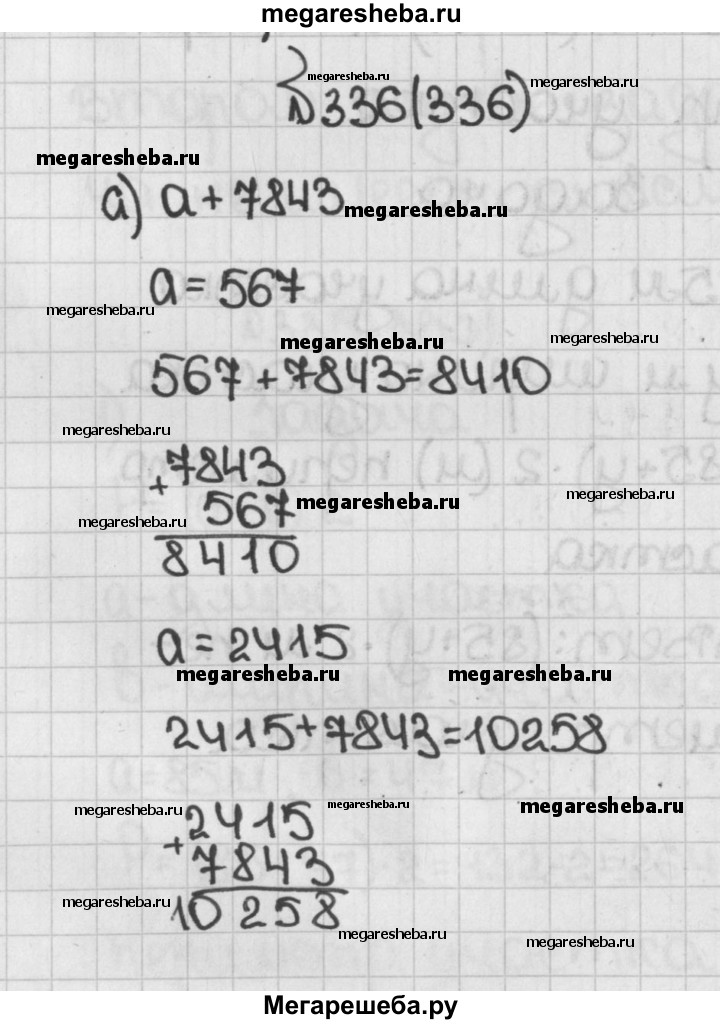 megaresheba.ru
megaresheba.ru
№336(336) megaresheba.ru
megaresheba.ru
а) a + 7843 megaresheba.ru
a = 567
megaresheba.ru
megaresheba.ru megaresheba.ru
567 + 7843 = 8410
megaresheba.ru
+ 7843
567 megaresheba.ru megaresheba.ru
megaresheba.ru
8410
a = 2415
megaresheba.ru megaresheba.ru
2415 + 7843 = 10258
megaresheba.ru megaresheba.ru megaresheba.ru
+ 2415
7843
megaresheba.ru 10 258
megaresheba.ru megaresheba.ru
Мегарешеба.ру